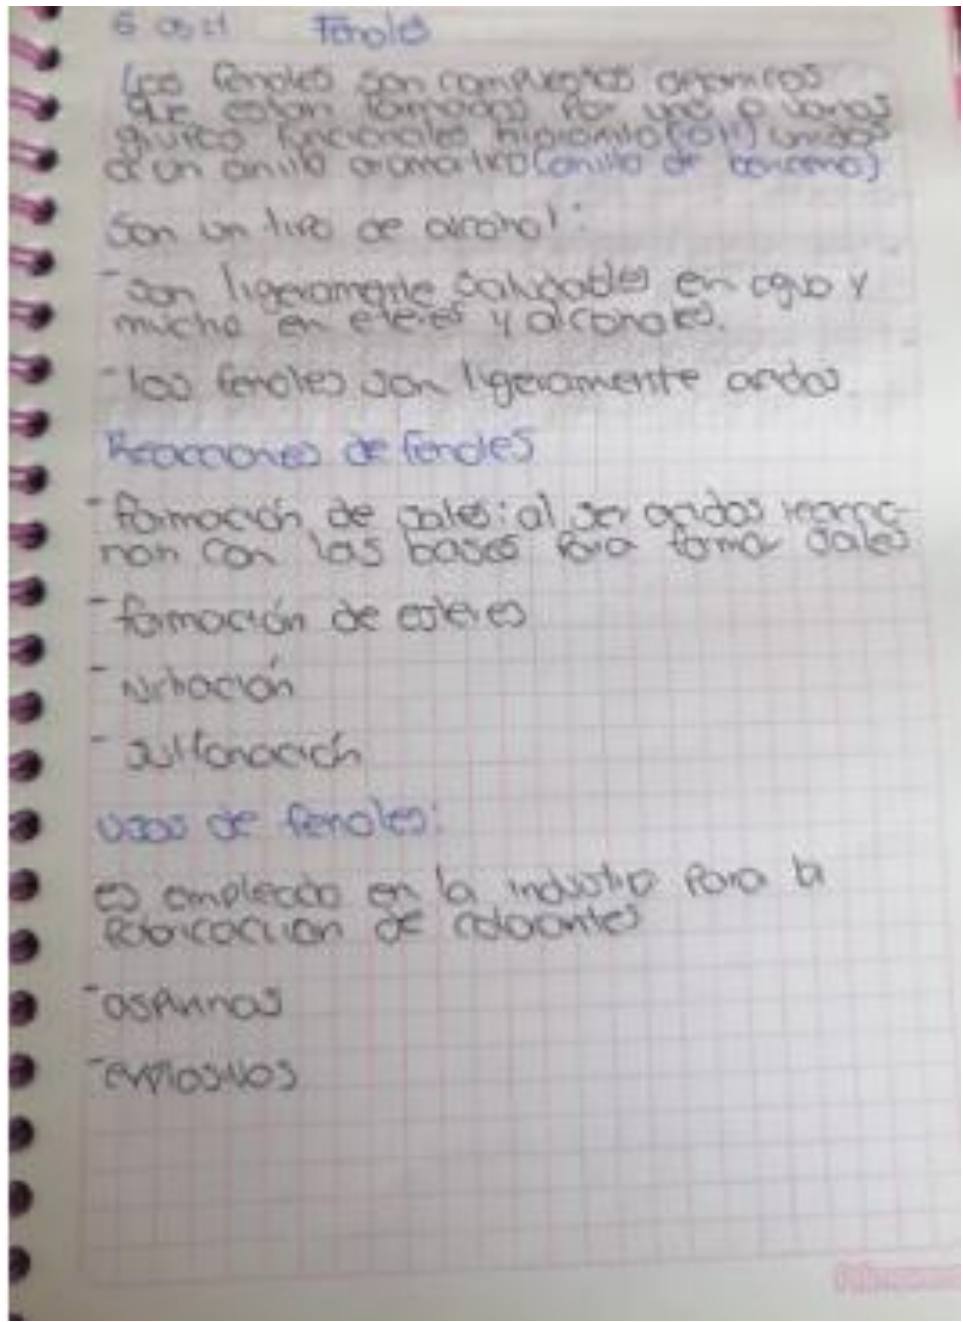 Fenoles
Los fenoles son compuestos organicos
que estan formados por uno o varios
grupos funcionales hidroxilo (OH) unidos
a un anillo aromatico (anillo de benceno)
Son un tipo de alcohol:
- son ligeramente en agua y
mucho en eteres y alcoholes.
- los fenoles son ligeramente acidos.
Reacciones de fenoles
- formación de sales: al ser acidos reaccio-
nan con las bases para formar sales
- formación de esteres
- Nitración
- sulfonación
usos de fenoles:
es empleado en la industria para la
fabricación de colorantes
- aspirinas
- explosivos